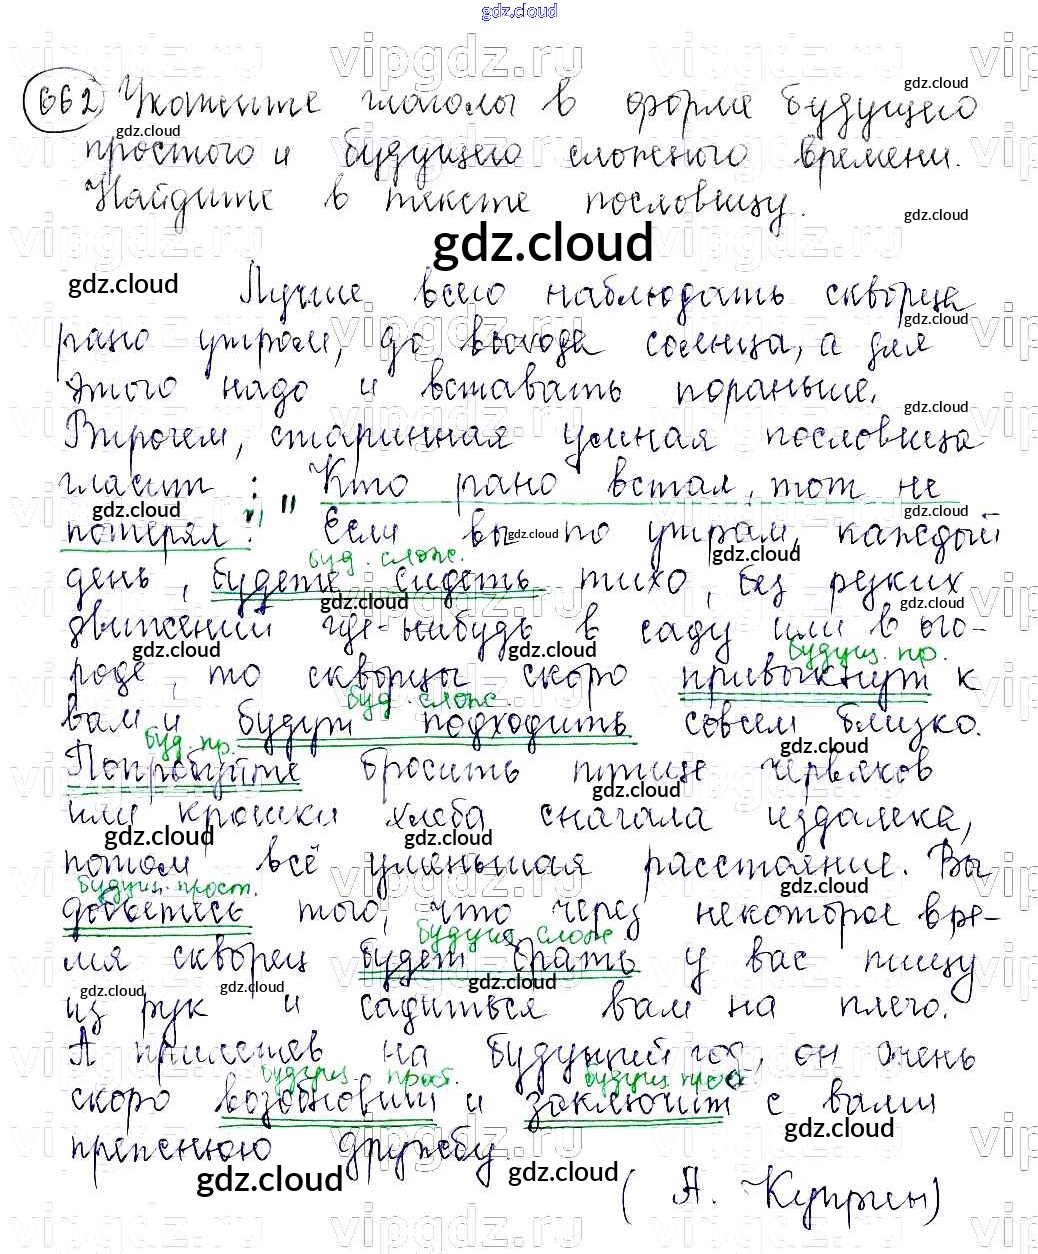 gdz.cloud
662 Укажите глаголы в форме будущего
простого и будущего сложного времени.
Найдите в тексте пословицу.
gdz.cloud
Лучше всего наблюдать скворца
рано утром, до выхода солнца, а для
этого надо и вставать пораньше.
Впрочем, старинная умная пословица
гласит: "Кто рано встал, тот не
потерял". Если вы по утрам, каждый
буд. слож.
день, будете сидеть тихо, без резких
движений где-нибудь в саду или в ого-
будущ. пр.
роде, то скворцы скоро привыкнут к
буд. слож.
вам и будут подходить совсем близко.
буд. пр.
Попробуйте бросить птице червяков
или крошки хлеба сначала издалека,
потом всё уменьшая расстояние. Вы
будущ. прост.
добьетесь того, что через некоторое вре-
будущ. слож
мя скворец будет брать у вас пищу
из рук и садиться вам на плечо.
А прилетев на будущий год, он очень
будущ прост. будущ прост
скоро возобновит и заключит с вами
прежнюю дружбу.
(А. Куприн)